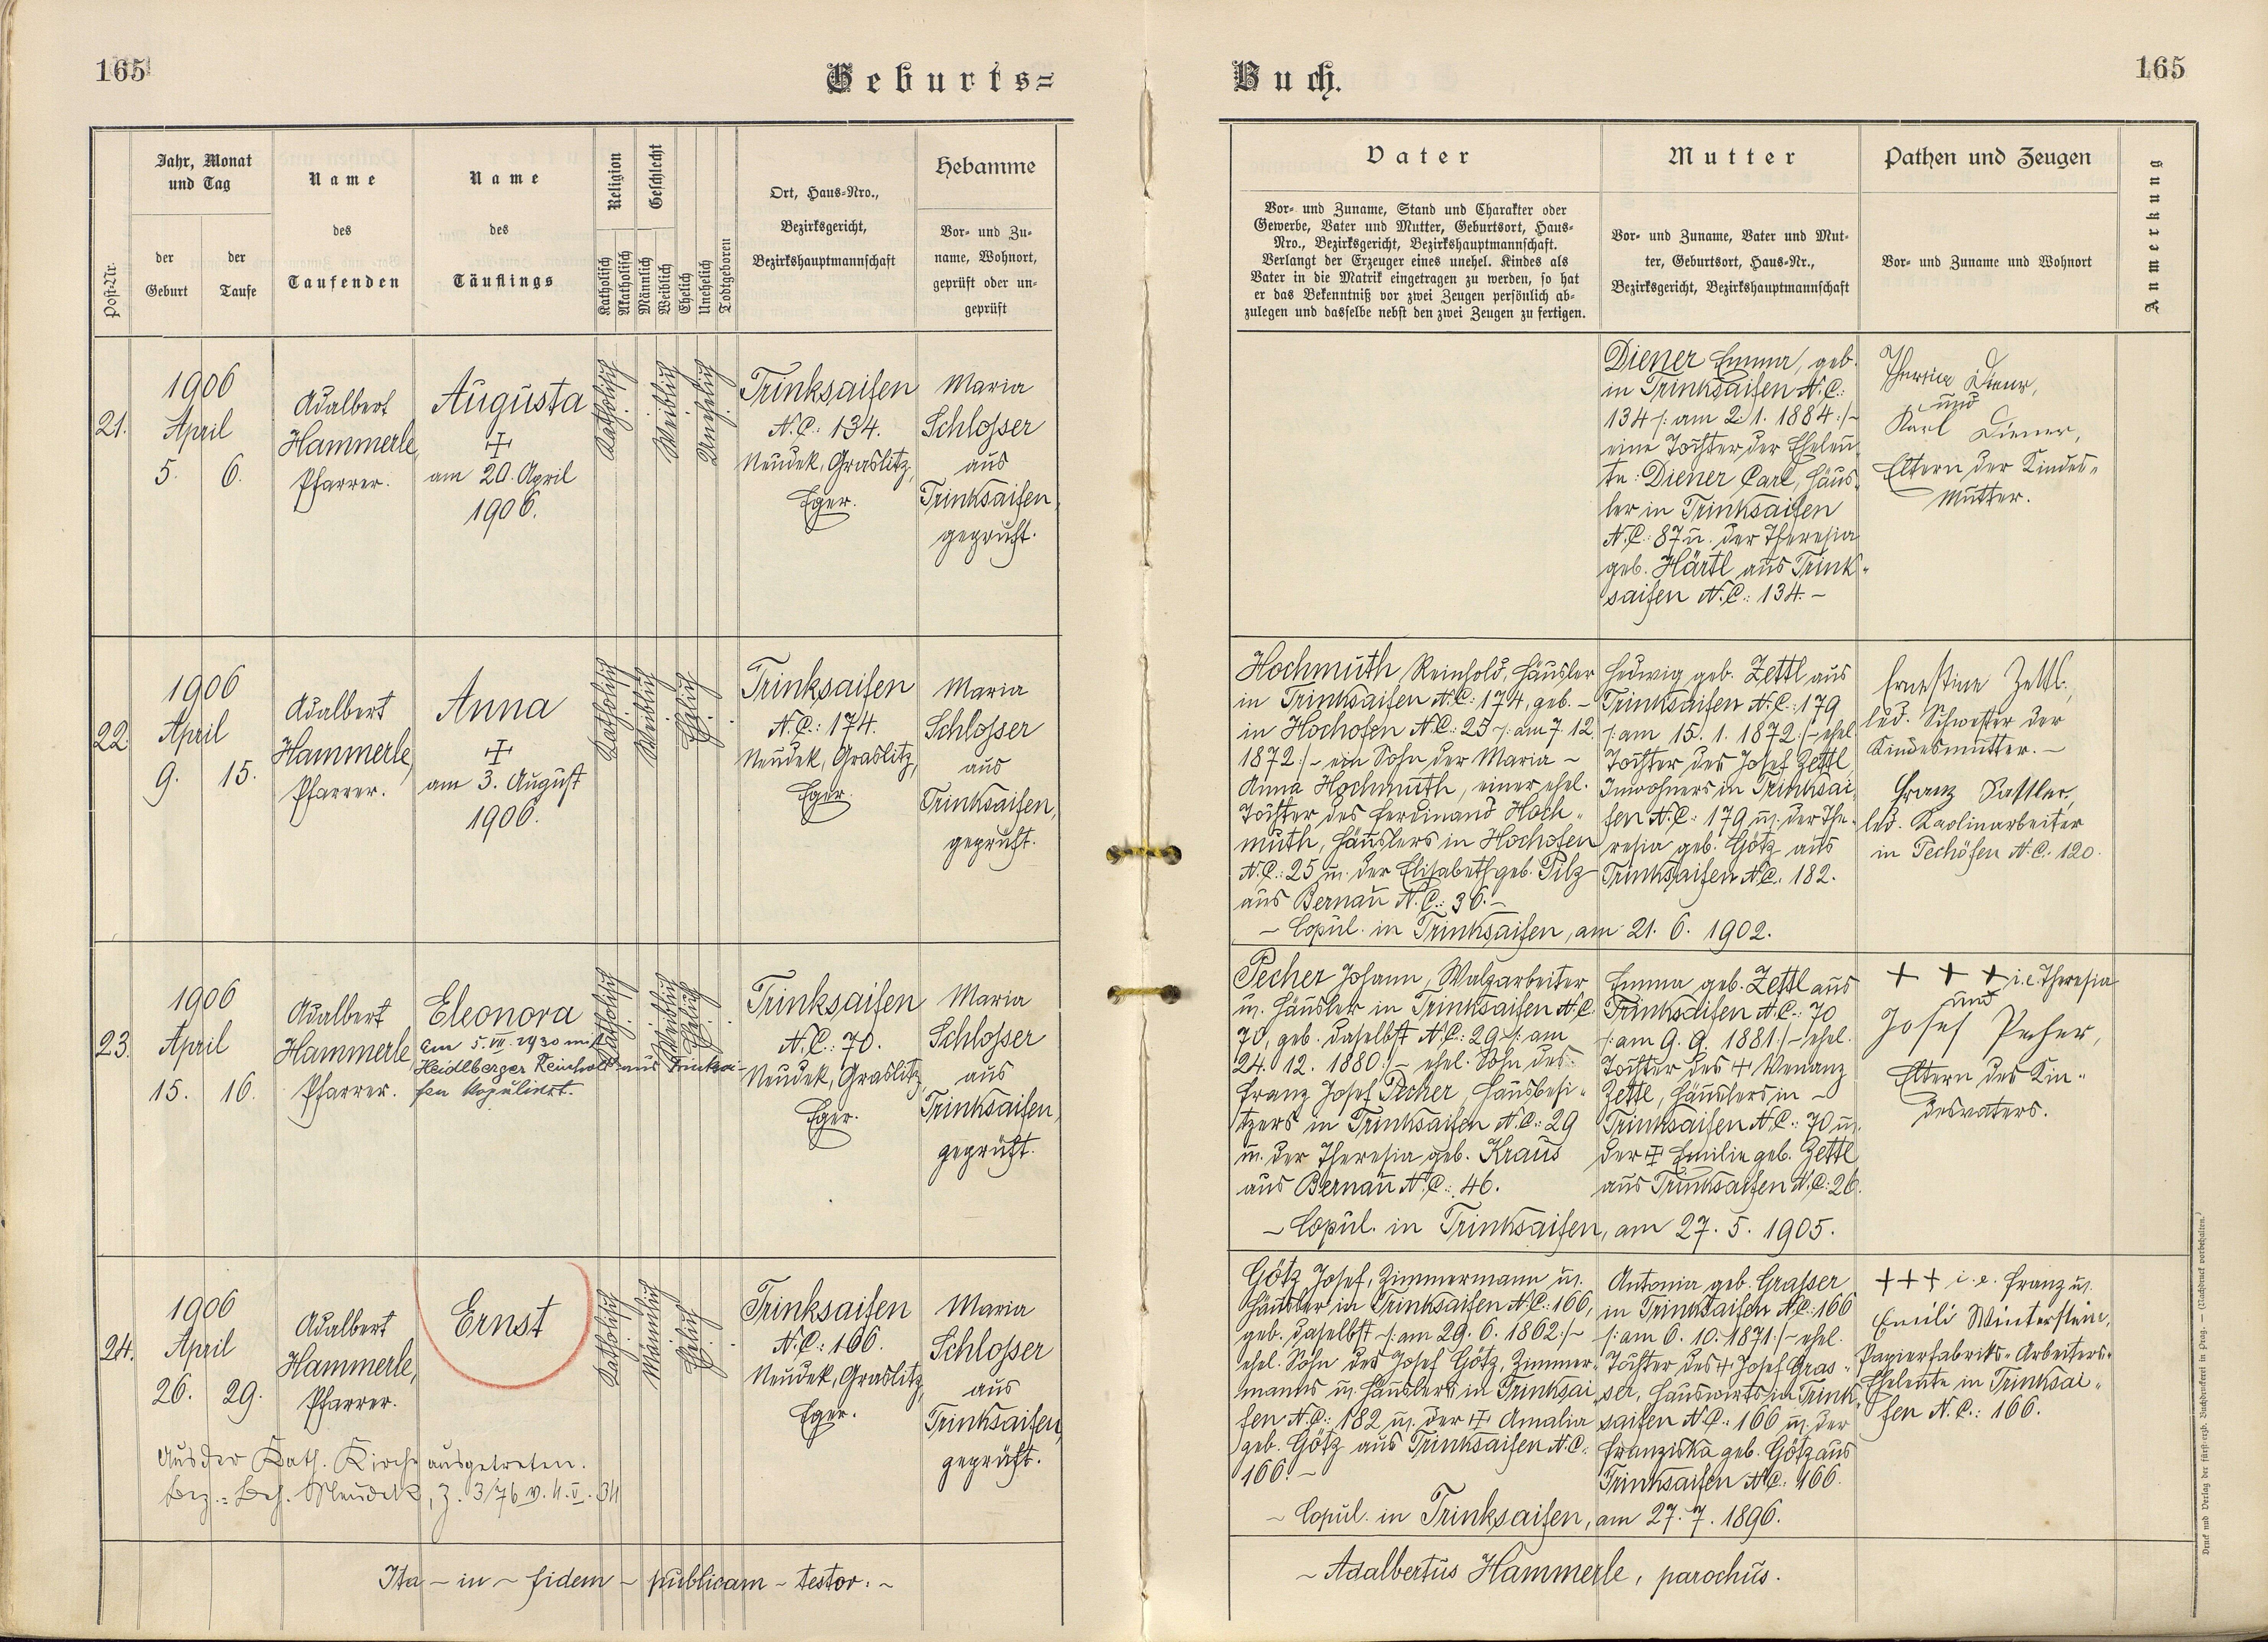 165
Geburts=
Jahr, Monat
und Tag
Name
Name
Religion
Geschlecht
Ort, Haus=Nro.,
Hebamme
Post-Nr.
der
Geburt
der
Taufe
des
Taufenden
des
Täuflings
Katholisch
Akatholisch
Männlich
Weiblich
Ehelich
Unehelich
Todtgeboren
Bezirksgericht,
Bezirkshauptmannschaft
Vor- und Zu-
name, Wohnort,
geprüft oder un-
geprüft
21.
1906
April
5. 6.
Adalbert
Hammerle,
Pfarrer.
Augusta
am 20. April
1906.
Katholisch
Weiblich
Unehelich
Trinksaifen
N.C.: 134.
Neudek, Graslitz,
Eger.
Maria
Schlosser
aus
Trinksaifen,
geprüft.
22
1906
April
9. 15.
Adalbert
Hammerle,
Pfarrer.
Anna
am 3. August
1906.
Katholisch
Weiblich
Ehelich
Trinksaifen
N.C.: 174.
Neudek, Graslitz,
Eger.
Maria
Schlosser
aus
Trinksaifen,
geprüft.
23.
1906
April
15. 16.
Adalbert
Hammerle
Pfarrer.
Eleonora
Am 5. VII. 1930 mit
Heidlberger Reinhold aus Trinksai-
fen kopuliert.
Katholisch
Weiblich
Ehelich
Trinksaifen
N.C.: 70.
Neudek, Graslitz
Eger.
Maria
Schlosser
aus
Trinksaifen,
geprüft.
24.
1906
April
26. 29.
Adalbert
Hammerle,
Pfarrer.
Ernst
Katholisch
Männlich
Ehelich
Trinksaifen
N.C.: 166.
Neudek, Graslitz,
Eger.
Maria
Schlosser
aus
Trinksaifen,
geprüft.
Aus der Kath. Kirche ausgetreten.
Bez.=Beh. Neudek, Z. 3/76 v. 4. V. 34
Ita – in – fidem – publicam – testor: –
Buch.
165
Vater
Mutter
Pathen und Zeugen
Anmerkung
Vor- und Zuname, Stand und Charakter oder
Gewerbe, Vater und Mutter, Geburtsort, Haus-
Nro., Bezirksgericht, Bezirkshauptmannschaft.
Verlangt der Erzeuger eines unehel. Kindes als
Vater in die Matrik eingetragen zu werden, so hat
er das Bekenntniß vor zwei Zeugen persönlich ab-
zulegen und dasselbe nebst den zwei Zeugen zu fertigen.
Vor- und Zuname, Vater und Mut-
ter, Geburtsort, Haus-Nr.,
Bezirksgericht, Bezirkshauptmannschaft
Vor- und Zuname und Wohnort
Diener Emma, geb.
in Trinksaifen N.C.:
134 /: am 2. 1. 1884 :/ –
eine Tochter der Eheleu-
te: Diener Carl, Häus-
ler in Trinksaifen
N.C.: 87 u. der Theresia
geb. Härtl aus Trink-
saifen N.C.: 134. –
Theresia Diener,
und
Karl Diener,
Eltern der Kindes-
mutter.
Hochmuth Reinhold, Häusler
in Trinksaifen N.C.: 174, geb. –
in Hochofen N.C.: 25 /: am 7. 12.
1872 :/ – ein Sohn der Maria –
Anna Hochmuth, einer ehel.
Tochter des Ferdinand Hoch-
muth, Häuslers in Hochofen
N.C.: 25 u. der Elisabeth geb. Pilz
aus Bernau N.C.: 36. –
Hedwig geb. Zettl aus
Trinksaifen N.C.: 179
/: am 15. 1. 1872 :/ – ehel.
Tochter des Josef Zettl
Inwohners in Trinksai-
fen N.C.: 179 u. der The-
resia geb. Götz aus
Trinksaifen N.C.: 182.
– Copul. in Trinksaifen, am 21. 6. 1902.
Ernestine Zettl,
led. Schwester der
Kindesmutter. –
Franz Sattler,
led. Kaolinarbeiter
in Pechöfen N.C.: 120.
Pecher Johann, Walzarbeiter
u. Häusler in Trinksaifen N.C.
70, geb. daselbst N.C.: 29 /: am
24. 12. 1880 :/ – ehel. Sohn des
Franz Josef Pecher, Hausbesi-
tzers in Trinksaifen N.C.: 29
u. der Theresia geb. Kraus
aus Bernau N.C.: 46.
Emma geb. Zettl aus
Trinksaifen N.C.: 70
/: am 9. 9. 1881 :/ – ehel.
Tochter des + Wenanz
Zettl, Häuslers in –
Trinksaifen N.C.: 70 u.
der + Emilie geb. Zettl
aus Trinksaifen N.C.: 26.
– Copul. in Trinksaifen, am 27. 5. 1905.
+ + + i.e. Theresia
und
Josef Pecher,
Eltern des Kin-
desvaters.
Götz Josef, Zimmermann u.
Häusler in Trinksaifen N.C.: 166,
geb. daselbst /: am 29. 6. 1862 :/ –
ehel. Sohn des Josef Götz, Zimmer-
manns u. Häuslers in Trinksai-
fen N.C.: 182 u. der + Amalia
geb. Götz aus Trinksaifen N.C.
166. –
Antonia geb. Grasser
in Trinksaifen N.C.: 166
/: am 6. 10. 1871 :/ – ehel.
Tochter des + Josef Gras-
ser, Hauswirts in Trink-
saifen N.C.: 166 u. der
Franziska geb. Götz aus
Trinksaifen N.C.: 166.
– Copul. in Trinksaifen, am 27. 7. 1896.
+++ i.e. Franz u.
Emili Winterstein,
Papierfabriks-Arbeiters-
Eheleute in Trinksai-
fen N.C.: 166.
– Adalbertus Hammerle, parochus.
Druck und Verlag der fürst-erzb. Buchdruckerei in Prag. — (Nachdruck vorbehalten.)